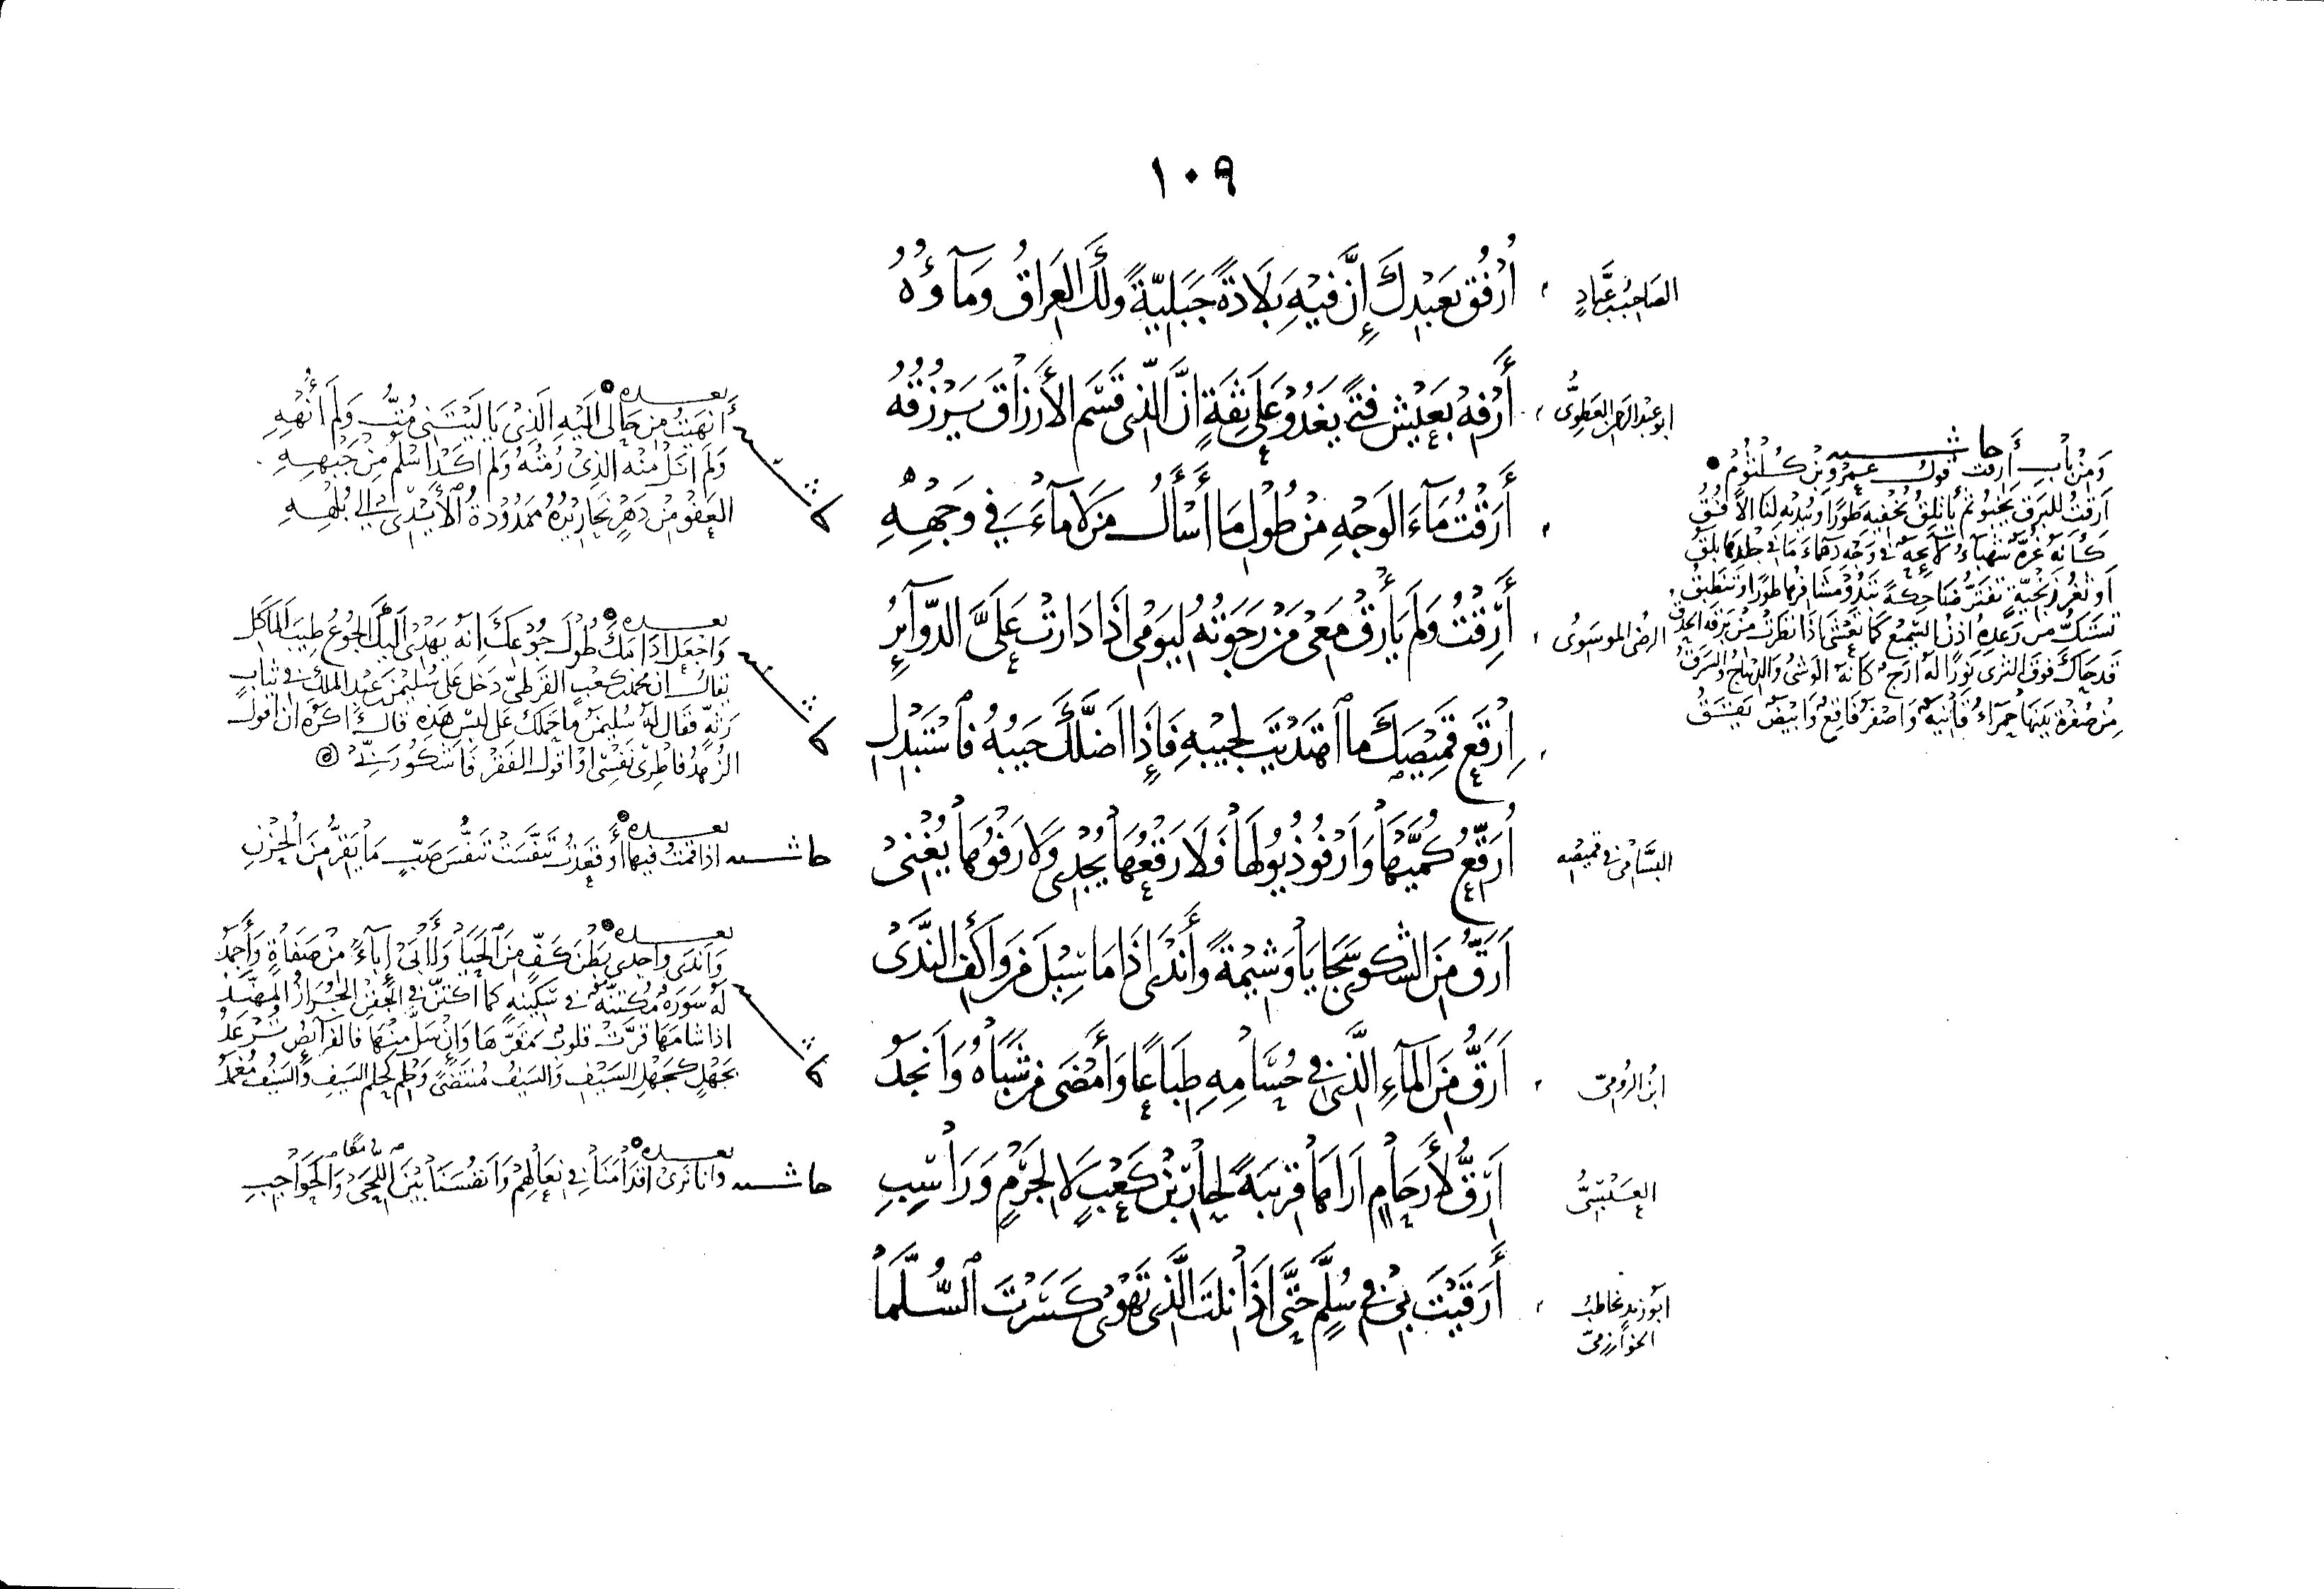 ١٠٩
الصاحب بن عباد
أُرْفُق بعَبْدِكَ إِنَّ فيْهِ بَلَادَةً جَبَليّةً ولَكَ العِرَاقُ وَمَآؤُهُ
ابو عبد الرحمن العطوىُّ
أَرْفِهْ بعَيْشِ فتىً يَغدُوْ عَلَى ثِقَةٍ انَّ الّذى قَسَّم الأَرْزاقَ يَرْزُقهُ
أَرَقْتُ مَآءَ الوَجْهِ مْن طُوْلِ مَا أَسْأَلُ مَن لا مآءَ في وَجْهِهِ
الرضى الموسوىُ
أَرِقْتُ وَلَم يَأْرَقْ مَعِى مَنْ رَجَوْتُهُ ليَوْمِى اذَا دَارَتْ عَلَىَّ الدّوآئِرُ
اِرْقَعْ قَمِيْصَكَ ما اهْتَدَيْتَ لجَيْبهِ فَإذَا اضَلَّكَ جَيبُهُ فاسْتَبْدِلِ
البسَّامى فى قميصه
أُرَقّعُ كُمَّيْهَا وَارْفُو ذيُولَها فَلَا رَقْعُهَا يُجْدِى وَلَا رَفْوُهَا يُغْنِىْ
اَرَقُّ مِنَ الشَكوى سَجَايَا وَشِيْمَةً وأَنْدَى اذَا مَا سِيْلَ مِنْ وَاكِفِ النَّدَىْ
ابن الرومىّ
اَرَقُّ مِنَ المآءِ الَّذى فى حُسَامِهِ طِبَاعًا وَأَمْضَى مِنْ شَبَاهُ وَانجَدُ
العبسىُّ
اَرِقُّ لأَرحَامٍ اَرَاهَا قريبَةً لحارِ بْن كَعْبٍ لا لجَرْمٍ وَرَاسِبِ
ابو زيد يخاطب
الخوارزمىّ
أَرَقَيْتَ بىْ فى سُلَّمٍ حتَّى اذَا نلتَ الَّذى تَهْوَىْ كَسَرْتَ السُّلَّمَا
حاشيه
وَمنْ بابِ أَرقت قول عمرو بن كلثوم
اَرِقتُ للبَرق يَخبُو ثم يأتلِقُ يُخفيهِ طَورًا وَيُبديهِ لنَا الأُفُقُ
كأنّهُ غُرّة شهبآءُ لآئحة فى وَجه دهمآءَ مَا فى جلدِهَا بلقُ
اَو ثغر زنجيّةٍ تفترُّ ضاحكةً تبدُو مشافرها طورًا وتنطبقُ
تستكُّ من رَعْدِهِ اذنُ السَّميع كما تعْشَى اذا نظرت من بَرقه الحدقُ
قد حاكَ فوقَ الثرى نَورًا له أرج كأنّهُ الوَشى والديباج والسَرَقُ
من صفرة بينَها حمرآءُ قانية وَاصفر فاقع وَابيض يققُ
بعده
أَنهَيْتُ من حَالى اليْهِ الذِىْ يا ليتنى مُتُّ وَلَم أُنْهِهِ
وَلَم انَلْ منْهُ الذِىْ رُمْتُهُ وَلَم اكَدْ اسْلَمُ مِنْ جَبْههِ
العَفوُ مْن دَهْرٍ نحَاريْرُهُ ممدُودَةُ الأيْدِى الى بُلْهِهِ
بعده
وَاجْعَل ادَامَكَ طُولَ جُوْعكَ اِنّه يَهْدِى اليكَ الجُوعُ طِيبَ المأْكَل
يقال ان محمد بن كعب القرظىّ دَخل عَلى سُليمن بن عَبْد الملك فى ثيابٍ
رَثّةٍ فقال لَه سُليمن ما حَملك عَلى لبس هَذِهِ قال اكرَهُ ان اقول
الزُهدُ فاطرِى نَفسِى او اقول الفَقْر فَاشكو رَبّى
بعده
حاشيه اذا قمتُ فيها أَوْ قعَدتُ تنَفَّسَتْ تنَفُّسَ صَبٍّ مَا يَقرُّ مِنَ الحُزْنِ
بعده
وَاَندَى واَجدى بَطْنَ كَفٍّ مِنَ الحَيَا وَاَأْبَى إِبآءً مْن صَفاةٍ وأَجمَدُ
لَهُ سَوْرَة مُكتنّة فى سكينهِ كما اكتنَّ فى الجَفْنِ الجُرازُ المهَنّدُ
اذا شامَهَا قَرَّتْ قلوبٌ مَقَرَّهَا وَاِنْ سَلَّ منهَا فالفَرآئصُ تُرعَدُ
بجَهلٍ كجَهلِ السَيْفِ وَالسَيفُ مُنتَضىً وَحِلم كحلم السَيفِ وَالسَيْف مُغمَدُ
بعده
حاشيه وانا نرَىْ اقدَامَنَا فى نعَالهِمْ وَانفُسَنَا بَيْنَ اللِّحَىْ وَالحَوَاجِبِ